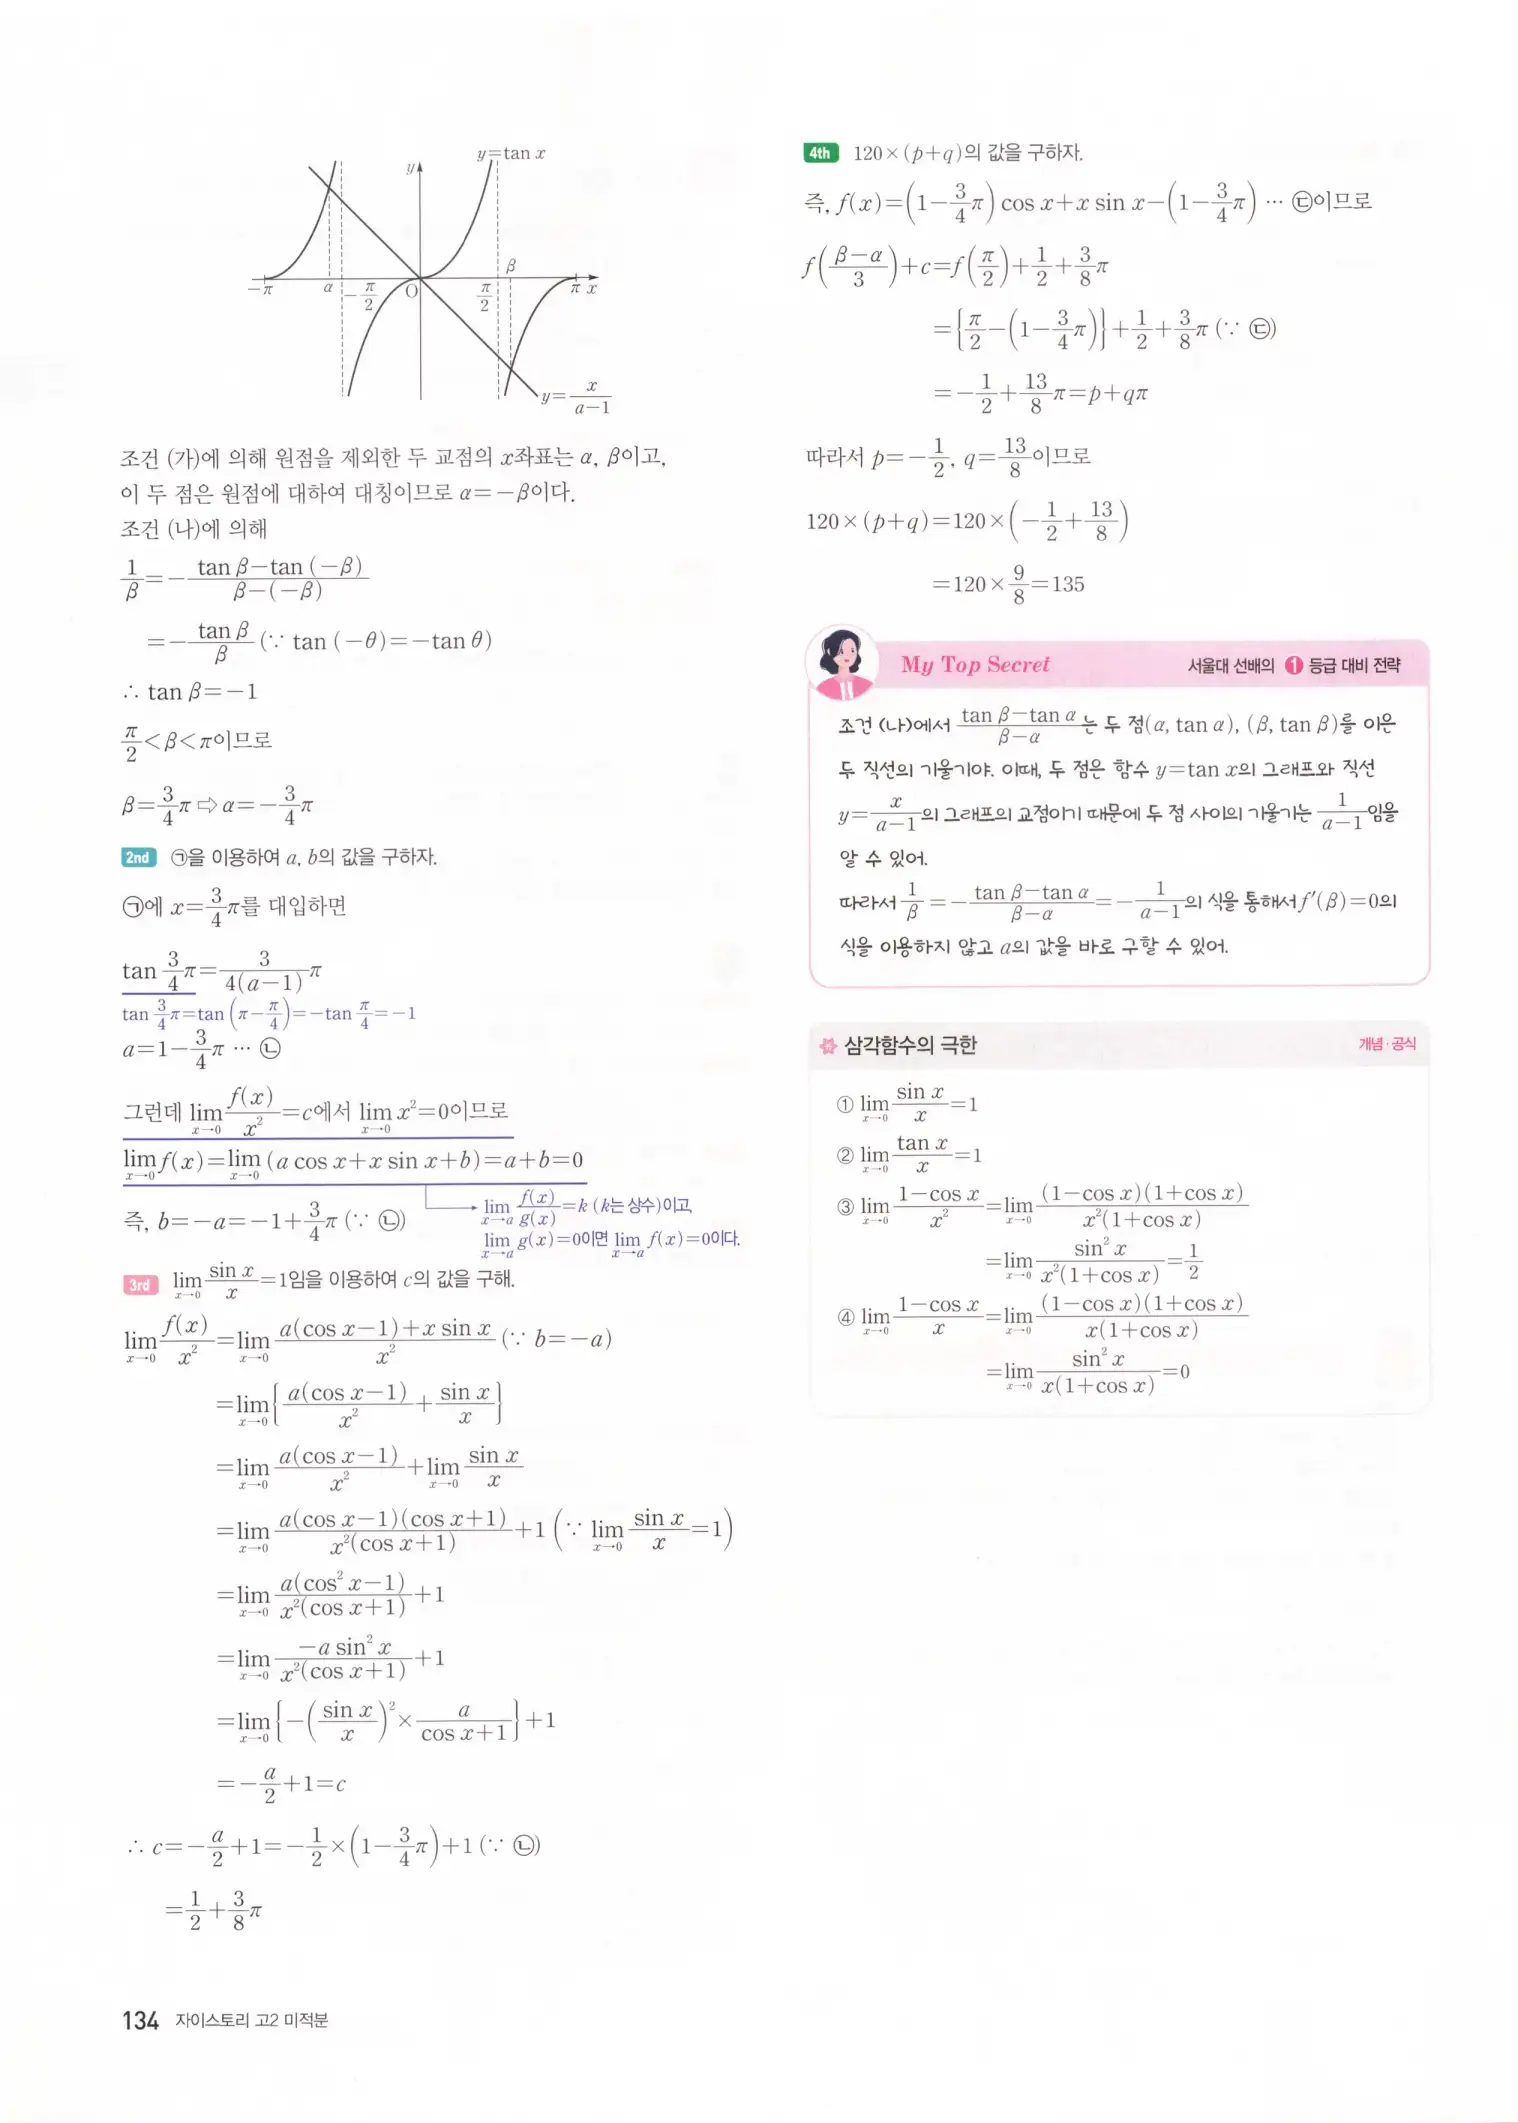 y=tan x
y
β
-π α -π/2 O π/2 π x
y=x/(a-1)
조건 (가)에 의해 원점을 제외한 두 교점의 x좌표는 α, β이고,
이 두 점은 원점에 대하여 대칭이므로 α=-β이다.
조건 (나)에 의해
1/β=-(tan β-tan (-β))/(β-(-β))
=-(tan β)/β (∵ tan (-θ)=-tan θ)
∴ tan β=-1
π/2<β<π이므로
β=3/4π ⇨ α=-3/4π
2nd ㉠을 이용하여 a, b의 값을 구하자.
㉠에 x=3/4π를 대입하면
tan 3/4π=3/(4(a-1))π
tan 3/4π=tan (π-π/4)=-tan π/4=-1
a=1-3/4π ··· ㉡
그런데 lim_{x→0} f(x)/x²=c에서 lim_{x→0} x²=0이므로
lim_{x→0} f(x)=lim_{x→0} (a cos x+x sin x+b)=a+b=0
즉, b=-a=-1+3/4π (∵ ㉡)
lim_{x→a} f(x)/g(x)=k (k는 상수)이고,
lim_{x→a} g(x)=0이면 lim_{x→a} f(x)=0이다.
3rd lim_{x→0} (sin x)/x=1임을 이용하여 c의 값을 구해.
lim_{x→0} f(x)/x²=lim_{x→0} (a(cos x-1)+x sin x)/x² (∵ b=-a)
=lim_{x→0} {(a(cos x-1))/x²+(sin x)/x}
=lim_{x→0} (a(cos x-1))/x²+lim_{x→0} (sin x)/x
=lim_{x→0} (a(cos x-1)(cos x+1))/(x²(cos x+1))+1 (∵ lim_{x→0} (sin x)/x=1)
=lim_{x→0} (a(cos² x-1))/(x²(cos x+1))+1
=lim_{x→0} (-a sin² x)/(x²(cos x+1))+1
=lim_{x→0} {-((sin x)/x)²×a/(cos x+1)}+1
=-a/2+1=c
∴ c=-a/2+1=-1/2×(1-3/4π)+1 (∵ ㉡)
=1/2+3/8π
134 자이스토리 고2 미적분
4th 120×(p+q)의 값을 구하자.
즉, f(x)=(1-3/4π) cos x+x sin x-(1-3/4π) ··· ㉢이므로
f((β-α)/3)+c=f(π/2)+1/2+3/8π
={π/2-(1-3/4π)}+1/2+3/8π (∵ ㉢)
=-1/2+13/8π=p+qπ
따라서 p=-1/2, q=13/8이므로
120×(p+q)=120×(-1/2+13/8)
=120×9/8=135
My Top Secret 서울대 선배의 1 등급 대비 전략
조건 (나)에서 (tan β-tan α)/(β-α)는 두 점(α, tan α), (β, tan β)를 이은
두 직선의 기울기야. 이때, 두 점은 함수 y=tan x의 그래프와 직선
y=x/(a-1)의 그래프의 교점이기 때문에 두 점 사이의 기울기는 1/(a-1)임을
알 수 있어.
따라서 1/β=-(tan β-tan α)/(β-α)=-1/(a-1)의 식을 통해서 f'(β)=0의
식을 이용하지 않고 a의 값을 바로 구할 수 있어.
삼각함수의 극한 개념·공식
① lim_{x→0} (sin x)/x=1
② lim_{x→0} (tan x)/x=1
③ lim_{x→0} (1-cos x)/x²=lim_{x→0} ((1-cos x)(1+cos x))/(x²(1+cos x))
=lim_{x→0} (sin² x)/(x²(1+cos x))=1/2
④ lim_{x→0} (1-cos x)/x=lim_{x→0} ((1-cos x)(1+cos x))/(x(1+cos x))
=lim_{x→0} (sin² x)/(x(1+cos x))=0